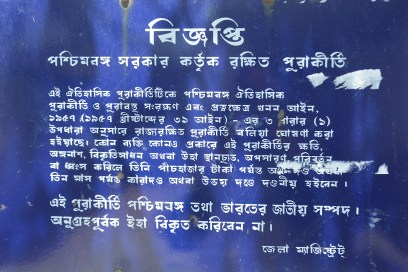 বিজ্ঞপ্তি
পশ্চিমবঙ্গ সরকার কর্তৃক রক্ষিত পুরাকীর্তি
এই ঐতিহাসিক পুরাকীর্তিটিকে পশ্চিমবঙ্গ ঐতিহাসিক
পুরাকীর্তি ও পুরাবস্তু সংরক্ষণ এবং প্রত্নক্ষেত্র খনন আইন,
১৯৫৭ (১৯৫৭ খ্রীষ্টাব্দের ৩১ আইন) - এর ৩ ধারার (১)
উপধারা অনুসারে রাজ্যরক্ষিত পুরাকীর্তি বলিয়া ঘোষণা করা
হইয়াছে। কোন ব্যক্তি কোনও প্রকারে এই পুরাকীর্তির ক্ষতি,
অঙ্গনাশ, বিকৃতিসাধন অথবা উহা স্থানচ্যুত, অপসারণ, পরিবর্তন
বা ধ্বংস করিলে তিনি পাঁচহাজার টাকা পর্যন্ত
তিন মাস পর্যন্ত কারাদণ্ড অথবা উভয় দণ্ডে দণ্ডনীয় হইবেন।
এই পুরাকীর্তি পশ্চিমবঙ্গ তথা ভারতের জাতীয় সম্পদ।
অনুগ্রহপূর্বক ইহা বিকৃত করিবেন না।
জেলা ম্যাজিস্ট্রেট